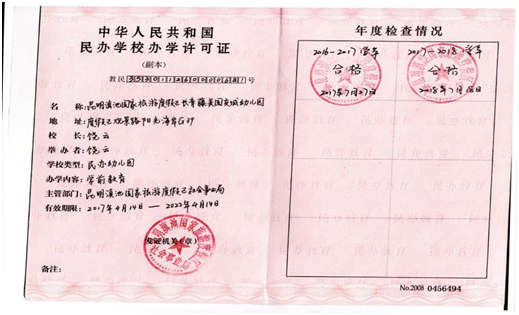 中华人民共和国
民办学校办学许可证
(副本)
教民 号
名 称:昆明滇池国家旅游度假区长青藤美国友城幼儿园
地 址:度假区观景路阳光海岸
校 长:饶云
举 办 者:饶云
学校类型:民办幼儿园
办学内容:学前教育
主管部门:昆明滇池国家旅游度假区社会事业局
有效期限:2017年4月14日 — 2022年4月14日
发证机关(章)
备注:
年度检查情况
2016-2017学年
合格
2017年7月27日
2017-2018学年
合格
2018年7月18日
No.2008 0456494